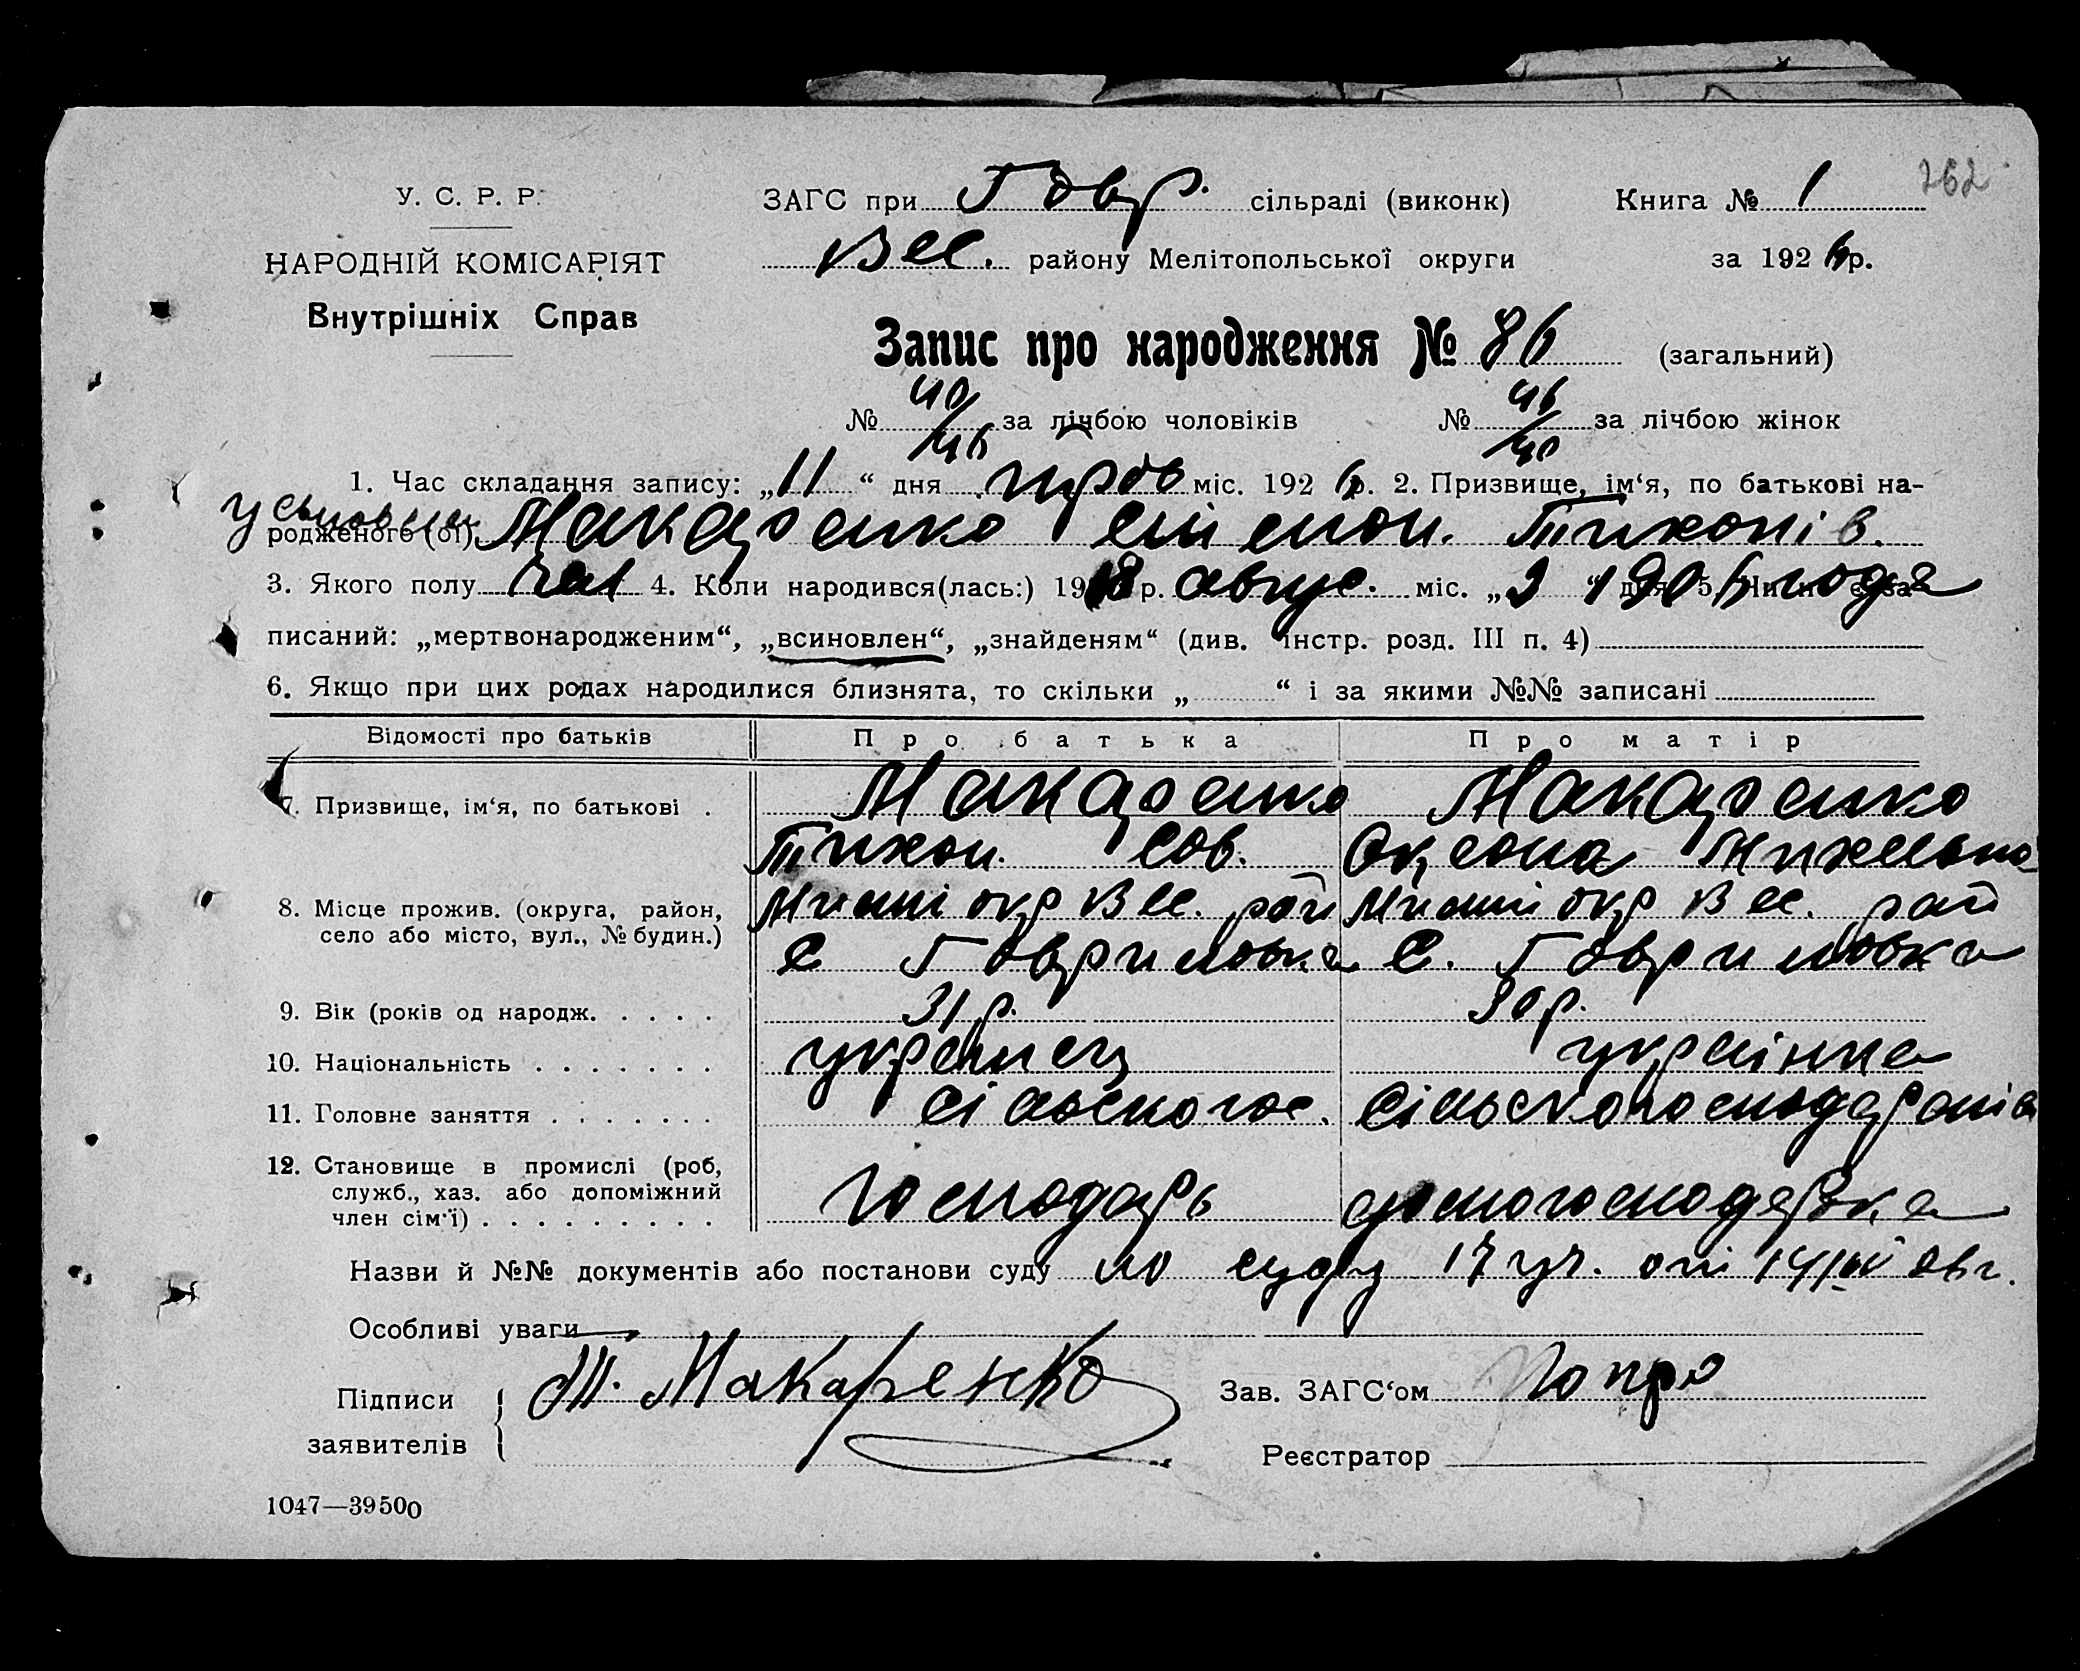 262
У. С. Р. Р.
ЗАГС при Гавр. сільраді (виконк)
Книга № 1
НАРОДНІЙ КОМІСАРІЯТ
Вес. району Мелітопольської округи
за 1926 р.
Внутрішніх Справ
Запис про народження № 86 (загальний)
№ 40/46 за лічбою чоловіків № 46/40 за лічбою жінок
1. Час складання запису: „11“ дня міс. 1926 р. 2. Призвище, ім‘я, по батькові на-
родженого (ої) Макаренко Тихонів.
3. Якого полу чол 4. Коли народився(лась:) 19 р. авгус. міс. „
писаний: „мертвонародженим“, „всиновлен“, „знайденям“ (див. інстр. розд. III п. 4)
6. Якщо при цих родах народилися близнята, то скільки „ “ і за якими №№ записані
Відомості про батьків Про батька Про матір
7. Призвище, ім‘я, по батькові . Макаренко Макаренко
Тихон Сав. Оксана
8. Місце прожив. (округа, район, окр Вес. рай окр Вес. рай
село або місто, вул., № будин.) С Гавриловка С. Гавриловка
9. Вік (років од народж. . . . . 31 р. 30 р.
10. Національність . . . . . . . українец українка
11. Головне заняття . . . . . . . сільськогос.
12. Становище в промислі (роб,
служб., хаз. або допоміжний господарь домогосподарка
член сім‘ї) . . . . . . . . .
Назви й №№ документів або постанови суду по суду 17 уч. авг.
Особливі уваги
Підписи Т. Макаренко Зав. ЗАГС‘ом
заявителів
Реєстратор
1047—39500